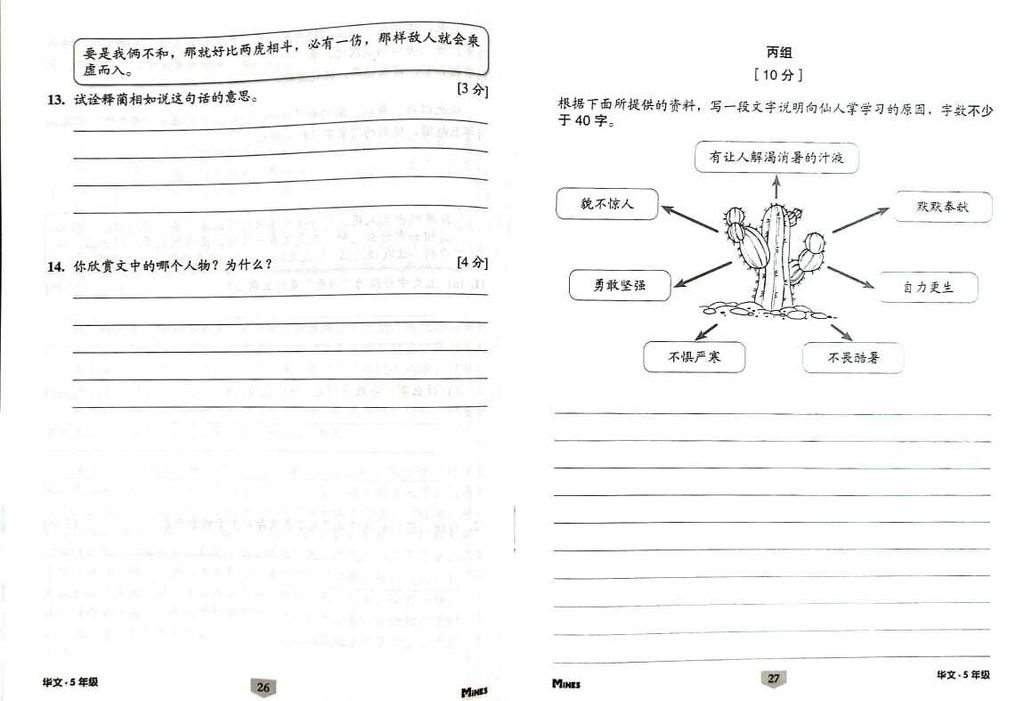 要是我俩不和，那就好比两虎相斗，必有一伤，那样敌人就会乘
虚而入。
13. 试诠释蔺相如说这句话的意思。 [3 分]
14. 你欣赏文中的哪个人物？为什么？ [4 分]
华文·5 年级
26
MINES
丙组
[ 10 分 ]
根据下面所提供的资料，写一段文字说明向仙人掌学习的原因，字数不少
于 40 字。
有让人解渴消暑的汁液
貌不惊人
默默奉献
勇敢坚强
自力更生
不惧严寒
不畏酷暑
MINES
27
华文·5 年级